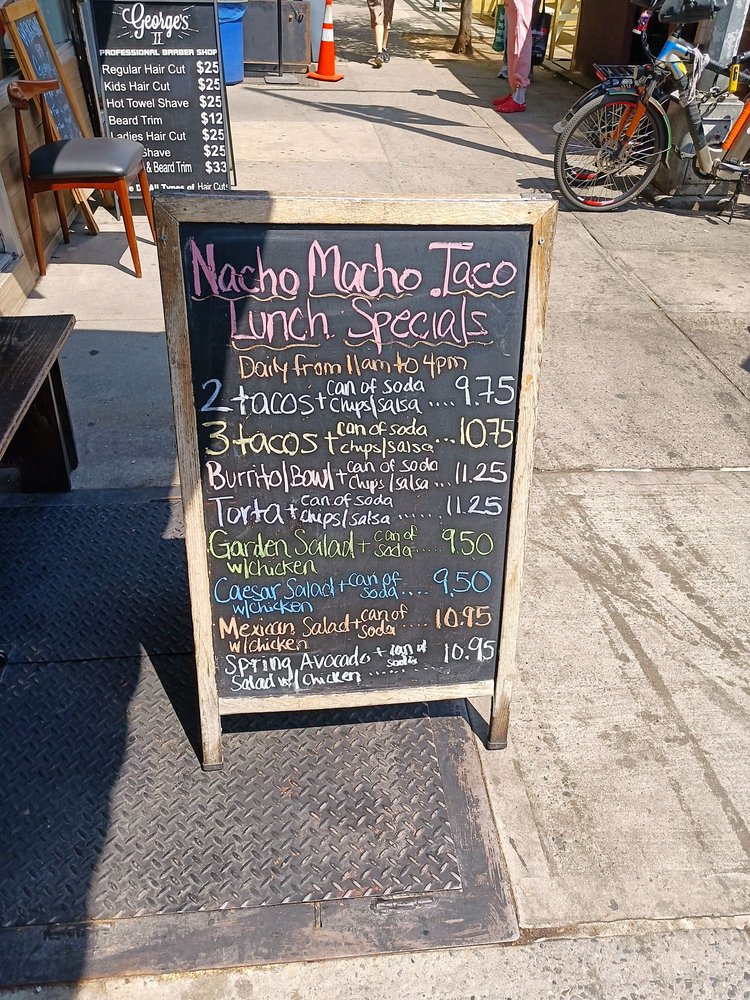 George's
II
PROFESSIONAL BARBER SHOP
Regular Hair Cut $25
Kids Hair Cut $25
Hot Towel Shave $25
Beard Trim $12
Ladies Hair Cut $25
Shave $25
& Beard Trim $33
All Types of Hair Cuts
Nacho Macho Taco
Lunch Specials
Daily from 11am to 4pm
2 tacos + can of soda chips/salsa .... 9.75
3 tacos + can of soda chips/salsa ... 10.75
Burrito/Bowl + can of soda chips/salsa ... 11.25
Torta + can of soda chips/salsa ..... 11.25
Garden Salad + can of soda .... 9.50
w/chicken
Caesar Salad + can of soda .... 9.50
w/chicken
Mexican Salad + can of soda .... 10.95
w/chicken
Spring Avocado + can of soda 10.95
Salad w/ Chicken ......